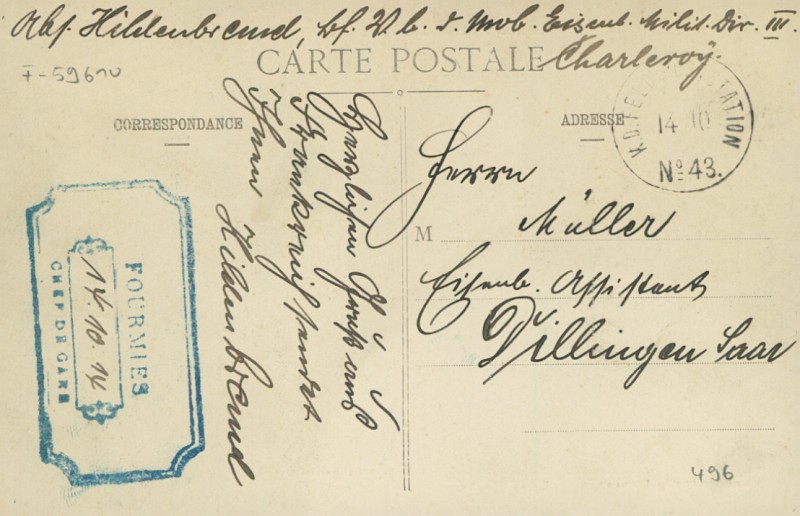 Abs. Hildenbrand, bf. V. b. d. Mob. Eisenb. Milit. Dir. III.
Charleroy.
F-59610
CARTE POSTALE
CORRESPONDANCE
ADRESSE
14 10
STATION
Nº 43.
Herzlichen Gruß aus
Frankreich sendet
Ihnen Hildenbrand
M
Herrn
Müller
Eisenb. Assistent
Dillingen Saar
FOURMIES
14.10.14
CHEF DE GARE
496